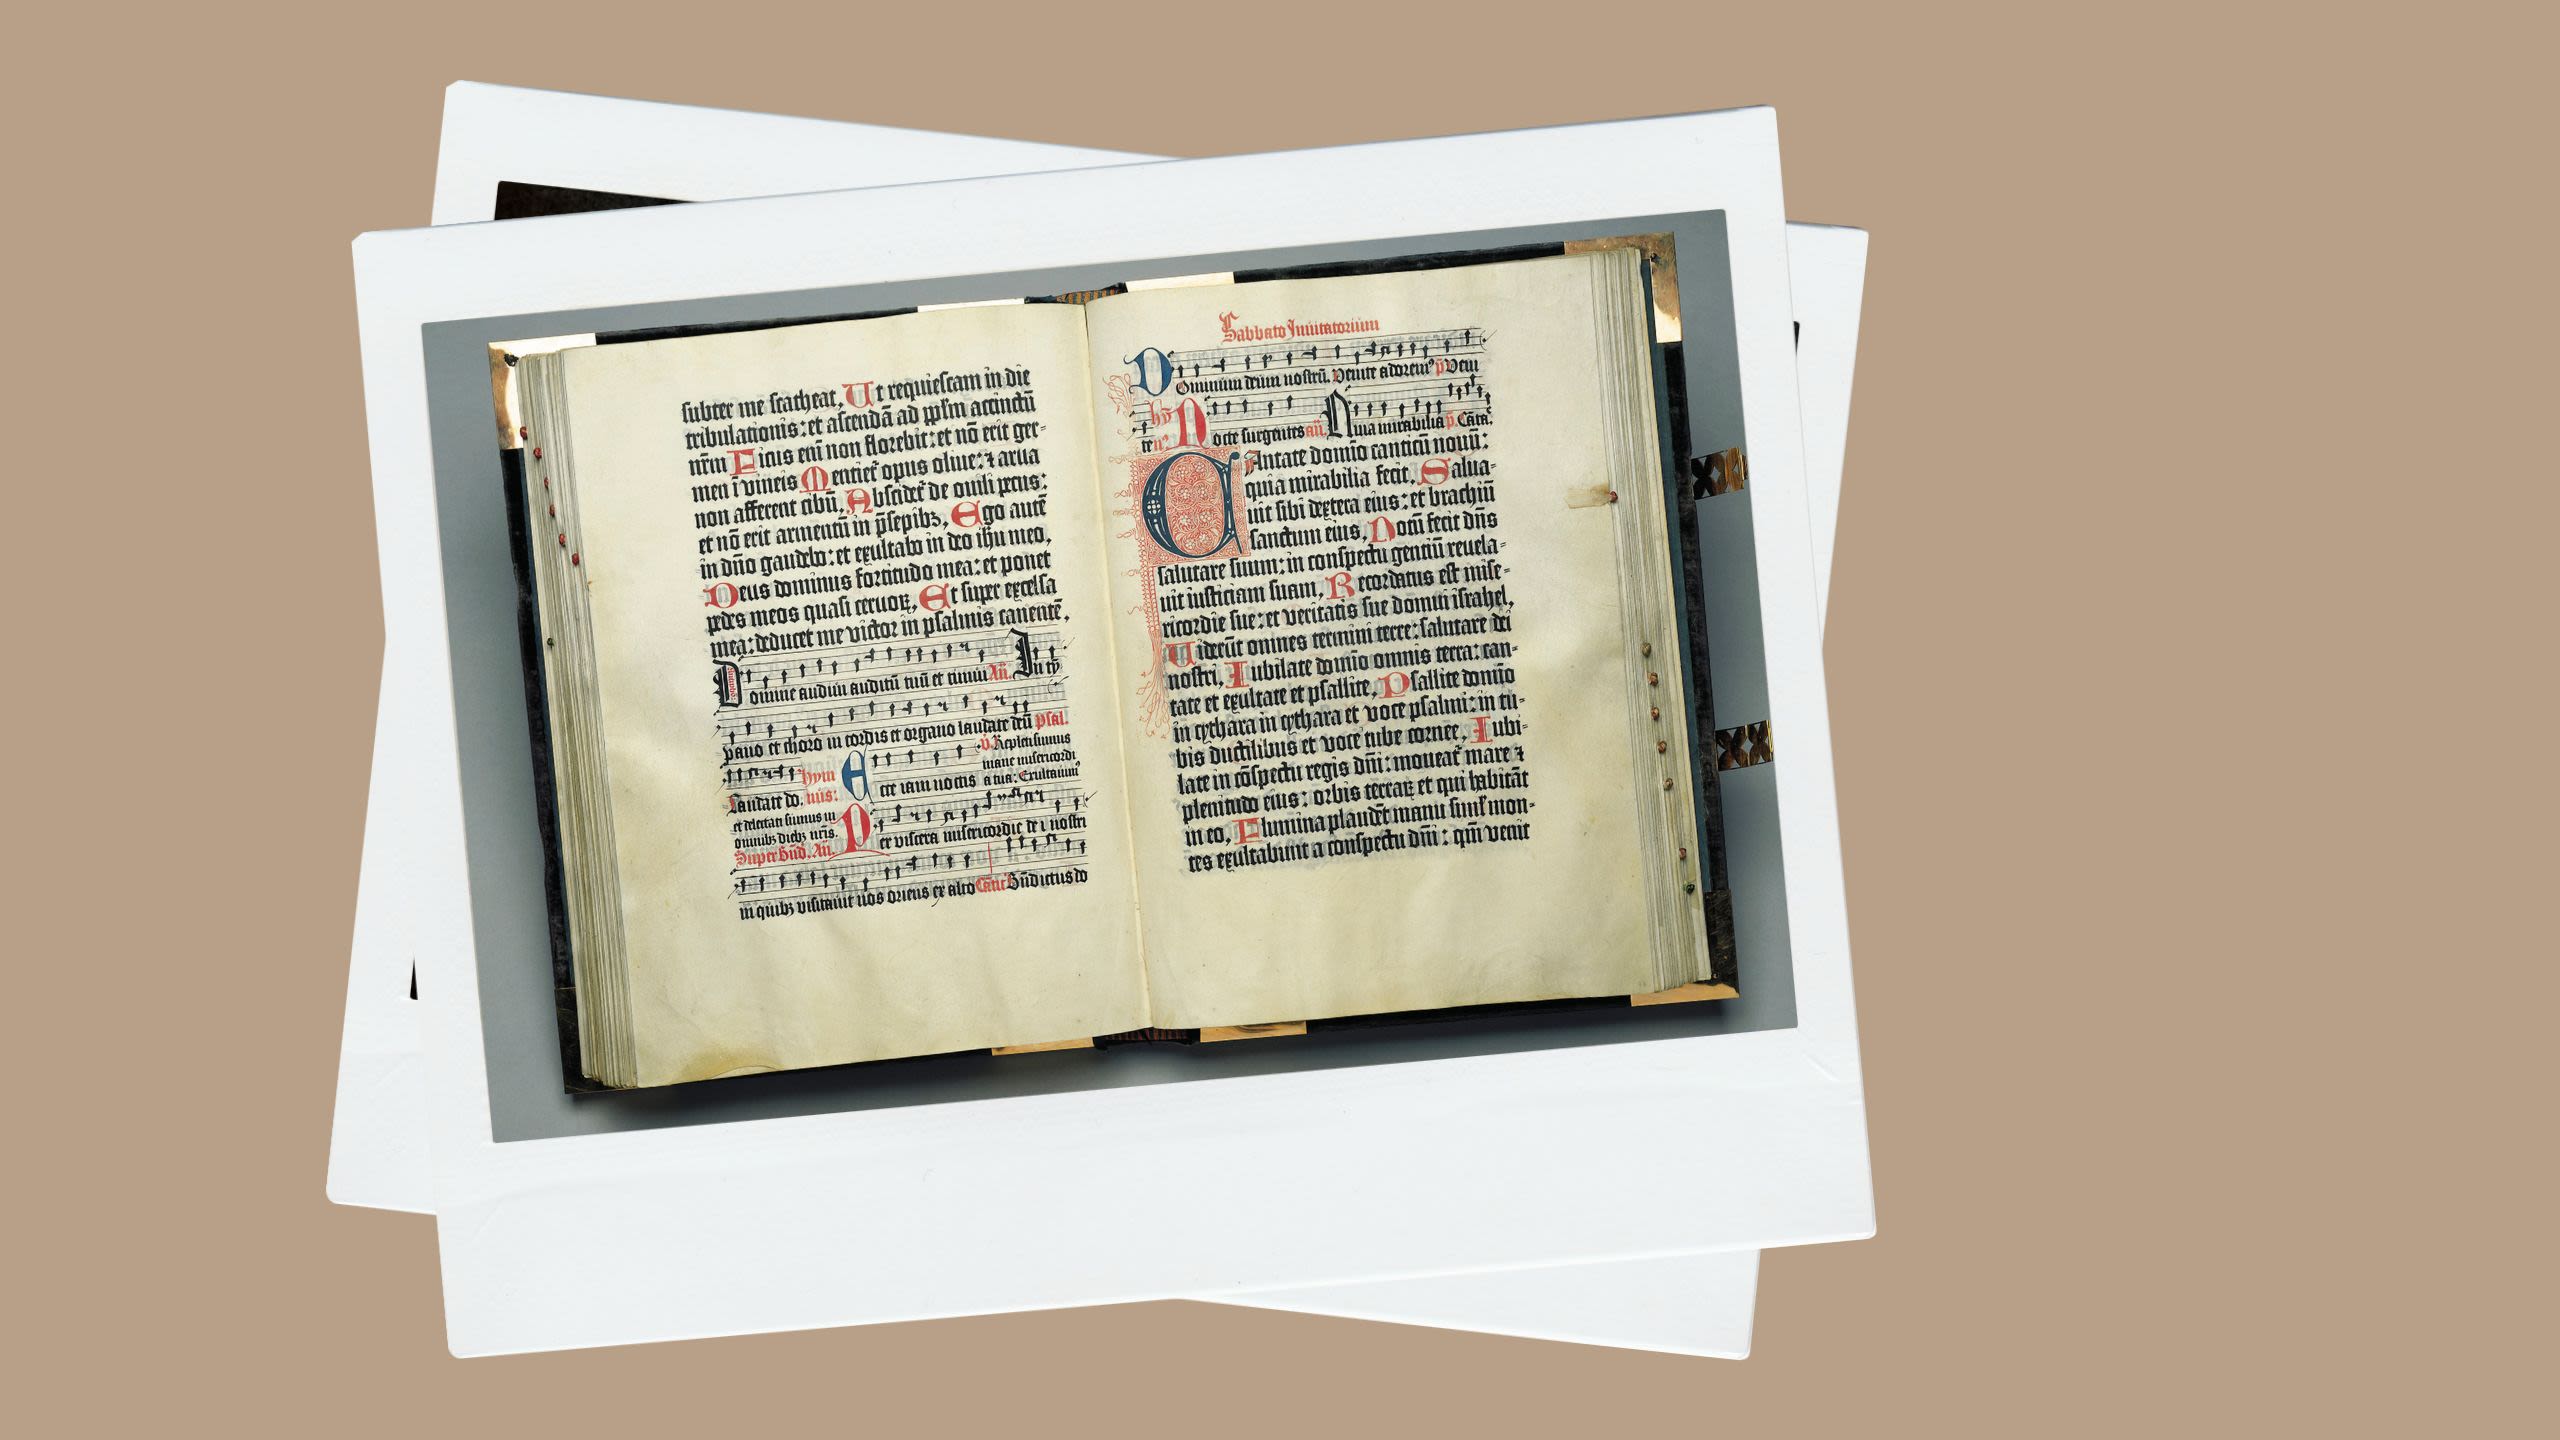 subter me scatheat, Ut requiescam in die
tribulationis: et ascendā ad pplm accinctū
nr̄m Ficus eni non florebit: et nō erit ger=
men ī vineis Mentiet᷑ opus olive: ⁊ arua
non afferent cibū, Abscidet᷑ de ouili pecus:
et nō erit armentū in p̄sepibꝫ, Ego autē
in dn̄o gaudebo: et exultabo in deo ihu meo,
Deus dominus fortitudo mea: et ponet
pedes meos quasi ceruoꝝ, Et super excelsa
mea: deducet me victor in psalmis canentē,
Domine audiui auditū tuū et timui An̄. In ty
pano et choro in cordis et organo laudate deū psal.
v̄. Repleti sumus
mane misericordi
Laudate do. hym nus: Ecce iam noctis a tua: Exultauim᷒
et delectati sumus in
omnibꝫ diebꝫ nr̄is.
Super Bn̄d. An̄. Per viscera misericordie dei nostri
in quibꝫ visitauit nos oriens ex alto Cātic Bn̄dictus do
Sabbato Inuitatorium
Dominum deum nostrū. Venite adorem᷒ p̄ Veni
hy
ten᷒ Nocte surgentes an̄. Quia mirabilia p̄. Cāta.
CAntate domīo canticū nouū:
quia mirabilia fecit, Salua=
uit sibi dextera eius: et brachiū
sanctum eius, Notū fecit dn̄s
salutare suum: in conspectu gentiū reuela=
uit iusticiam suam, Recordatus est mise=
ricordie sue: et veritatis sue domui israhel,
Uiderūt omnes termini terre: salutare dei
nostri, Iubilate domīo omnis terra: can=
tate et exultate et psallite, Psallite domīo
in cythara in cythara et voce psalmi: in tu=
bis ductilibus et voce tube cornee, Iubi=
late in cōspectu regis dn̄i: moueat᷑ mare ⁊
plenitudo eius: orbis terraꝝ et qui habitāt
in eo, Flumina plaudēt manu simł mon=
tes exultabunt a conspectu dn̄i: qm̄ venit